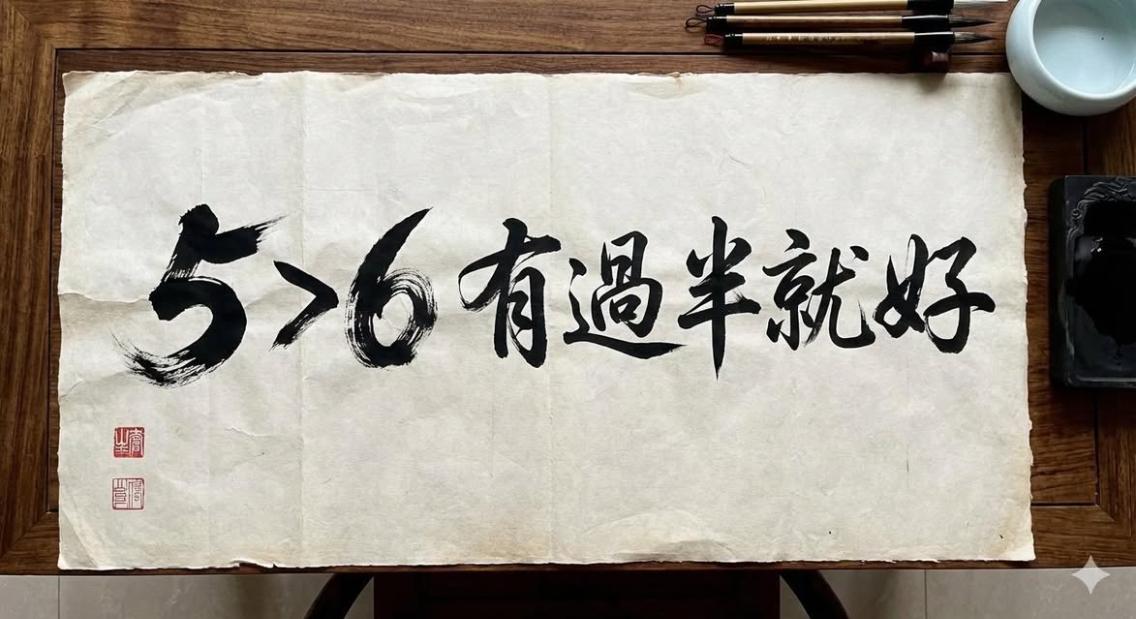 5>6有過半就好